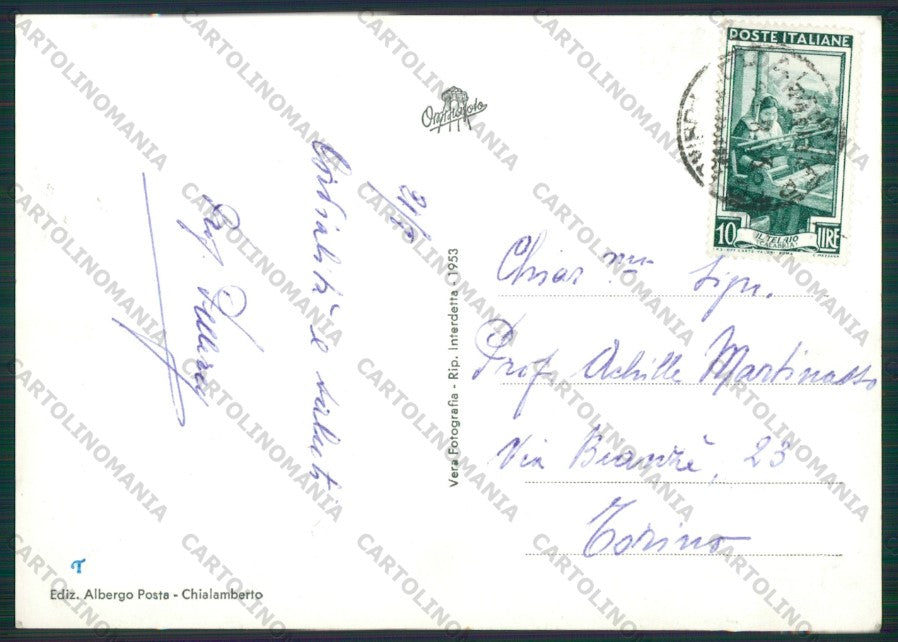 POSTE ITALIANE
10 LIRE
IL TELAIO
CALABRIA
21/
Cordialità e saluti
Prof.
Chiar.mo Sign.
Prof. Achille Martinasso
Via Bianzè, 23
Torino
Vera Fotografia - Rip. Interdetta - 1953
Ediz. Albergo Posta - Chialamberto
CARTOLINOMANIA